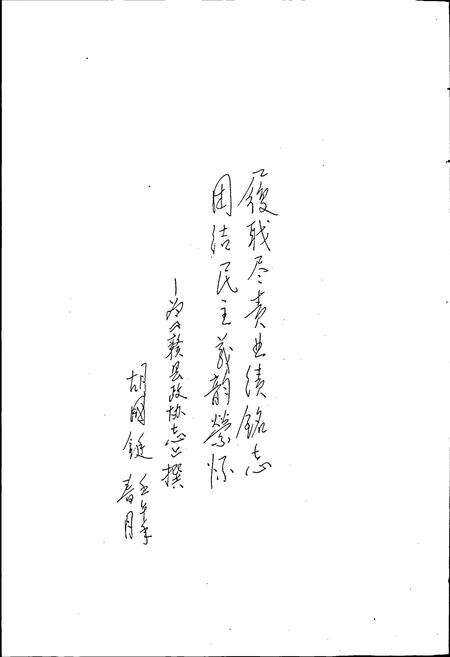 履职尽责业绩铭志
团结民主义韵萦怀
—为《赣县政协志》撰
胡国铤
壬午年
春月